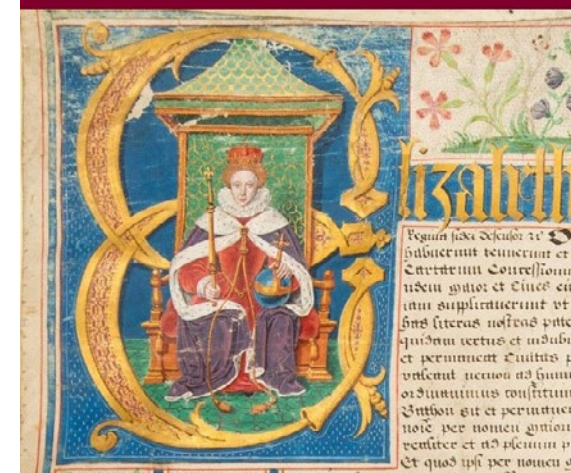 Elizabeth
Regina fidei defensor
habuerunt tenuerunt et
Cartarum Concessionu
maior et Cives
iam supplicauerunt vt
has literas nostras pate
quidam certus et indubi
et permaneat Ciuitas p
valeant necnon ad
ordinamus constitui
Bathon sit et permane
per nomen
realiter et ad plenum p
Et quod ipsi per nomen